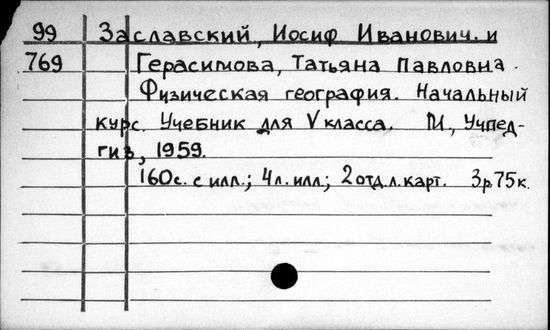 99 Заславский, Иосиф Иванович. и
769 Герасимова, Татьяна Павловна.
Физическая география. Начальный
курс. Учебник для V класса. М., Учпед-
гиз, 1959.
160с. с илл.; 4л. илл.; 2 отд.л. карт. 3р 75к.